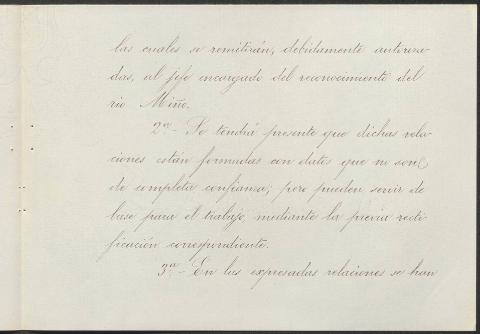 las cuales se remitirán, debidamente autoriza-
das, al jefe encargado del reconocimiento del
rio Miño.
2ª- Se tendrá presente que dichas rela-
ciones están formadas con datos que no son
de completa confianza; pero pueden servir de
base para el trabajo, mediante la previa recti-
ficación correspondiente.
3ª- En las expresadas relaciones se han